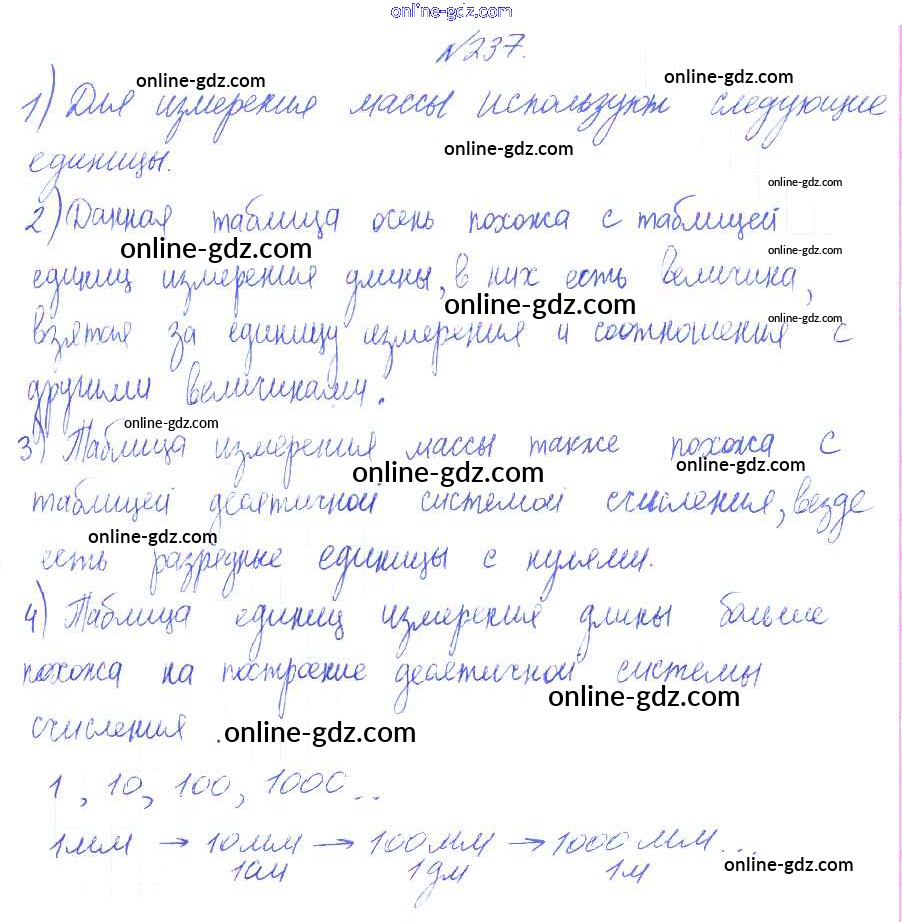 online-gdz.com
№237.
online-gdz.com online-gdz.com
1) Для измерения массы используют следующие
online-gdz.com
единицы.
online-gdz.com
2) Данная таблица осень похожа с таблицей
online-gdz.com online-gdz.com
единиц измерения длины, в них есть величина,
online-gdz.com online-gdz.com
взятая за единицу измерения и соотношения с
другими величинами.
online-gdz.com
3) Таблица измерения массы также похожа с
online-gdz.com online-gdz.com
таблицей десятичной системой счисления, везде
online-gdz.com
есть разрядные единицы с нулями.
4) Таблица единиц измерения длины больше
похожа на построение десятичной системы
online-gdz.com
счисления .
online-gdz.com
1, 10, 100, 1000..
1мм → 10мм → 100мм → 1000мм...
1см 1дм 1м
online-gdz.com